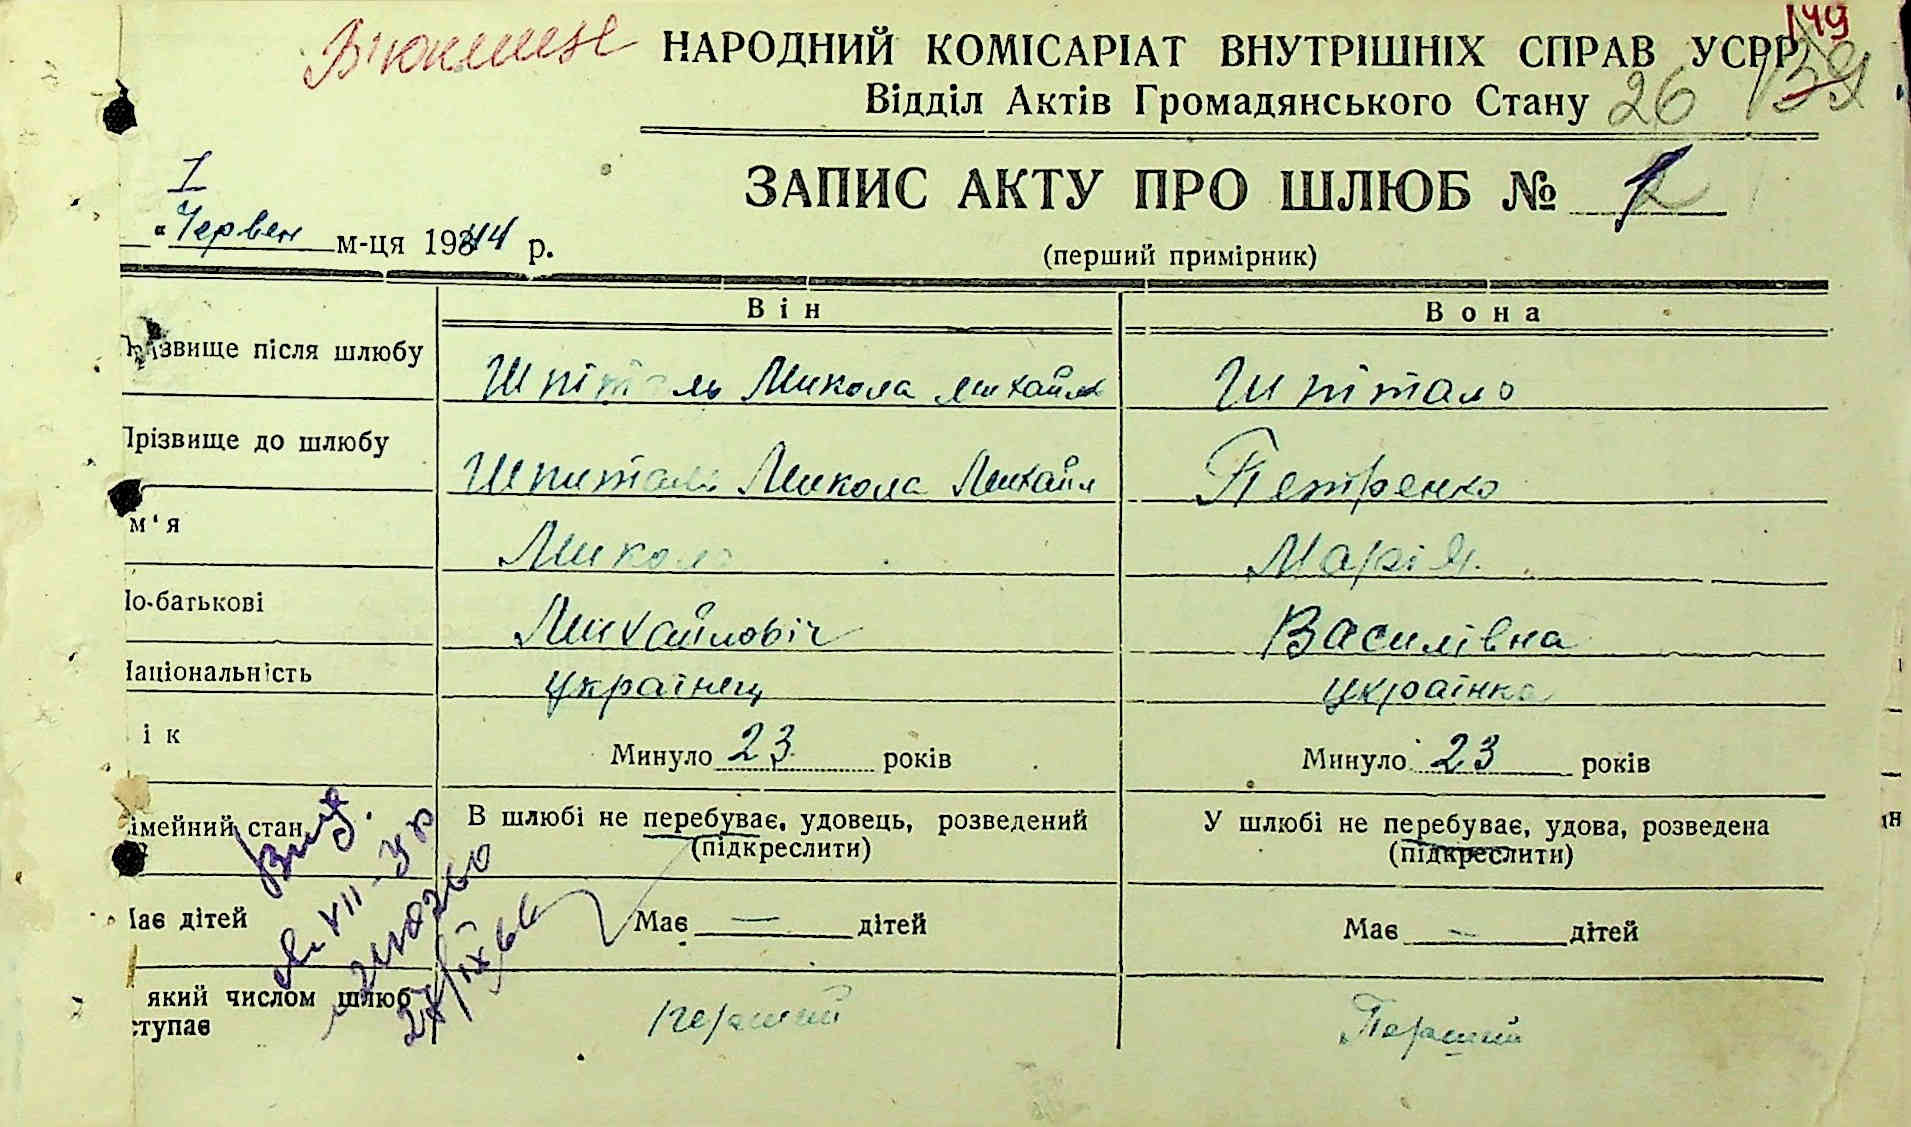 В'юнище НАРОДНИЙ КОМІСАРІАТ ВНУТРІШНІХ СПРАВ УСРР 149
Відділ Актів Громадянського Стану 26 139
ЗАПИС АКТУ ПРО ШЛЮБ №
(перший примірник)
1
"Червен м-ця 1944 р.
Він Вона
Прізвище після шлюбу Шпіталь Микола Михайл Шпіталь
Прізвище до шлюбу Шпиталь Микола Михайл Петренко
м'я Микола Марія.
По-батькові Михайловіч Василівна
Національність українец українка
ік Минуло 23 років Минуло 23 років
імейний стан В шлюбі не перебуває, удовець, розведений У шлюбі не перебуває, удова, розведена
(підкреслити) (підкреслити)
Має дітей Має — дітей Має — дітей
який числом шлюб перший Перший
ступає
Вид.
27/IX 66